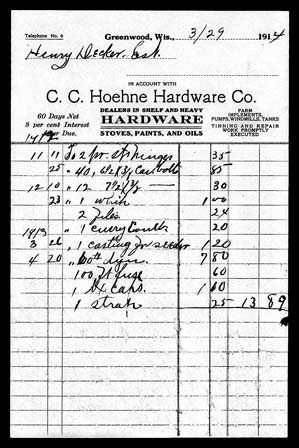 Telephone No. 6
Greenwood, Wis., 3/29 1914
Henry Decker. Est.
IN ACCOUNT WITH
C. C. Hoehne Hardware Co.
60 Days Net
8 per cent Interest
When Due.
DEALERS IN SHELF AND HEAVY
HARDWARE
STOVES, PAINTS, AND OILS
FARM
IMPLEMENTS,
PUMPS, WINDMILLS, TANKS
TINNING AND REPAIR
WORK PROMPTLY
EXECUTED
1912
11 11 To 2 pr. St Hinges 35
25 " 40, 6 1/2 x 3/8 Car bolt 85
12 10 " 12 7 1/2 x 3/8 — 30
23 " 1 1 00
2 Files 24
1913 " 1 emery 20
3 26 " 1 casting for seeder 1 20
4 20 " 60# dyn. 7 80
100 ft fuse 60
1 bx caps. 1 60
1 strap 25 13 89